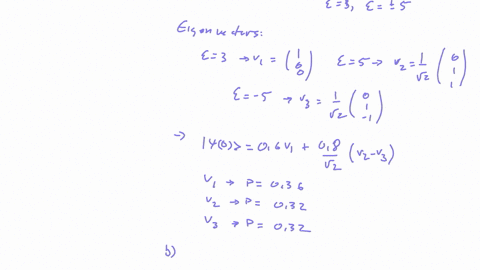 ε=3, ε=±5
Eigenvectors:
ε=3 → v₁ = (1 0 0) ε=5 → v₂ = 1/√2 (0 1 1)
ε=-5 → v₃ = 1/√2 (0 1 -1)
→ |Ψ(0)> = 0,6 v₁ + 0,8/√2 (v₂-v₃)
v₁ → P = 0,36
v₂ → P = 0,32
v₃ → P = 0,32
b)